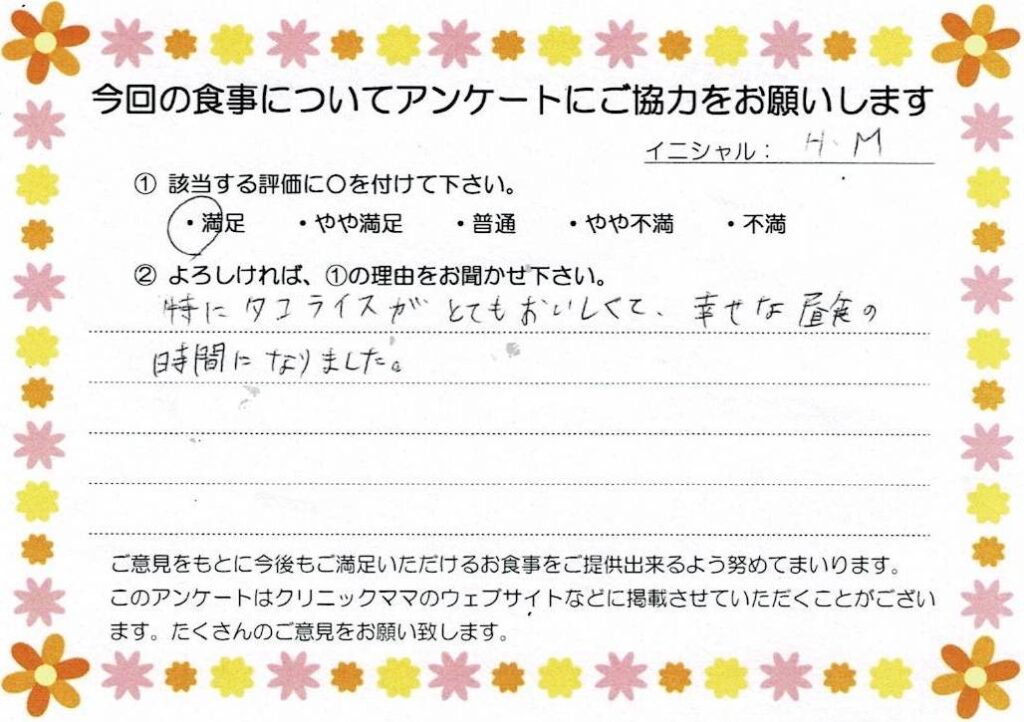 今回の食事についてアンケートにご協力をお願いします
イニシャル： H.M
① 該当する評価に〇を付けて下さい。
・満足 ・やや満足 ・普通 ・やや不満 ・不満
② よろしければ、①の理由をお聞かせ下さい。
特にタコライスがとてもおいしくて、幸せな昼食の
時間になりました。
ご意見をもとに今後もご満足いただけるお食事をご提供出来るよう努めてまいります。
このアンケートはクリニックママのウェブサイトなどに掲載させていただくことがござい
ます。たくさんのご意見をお願い致します。